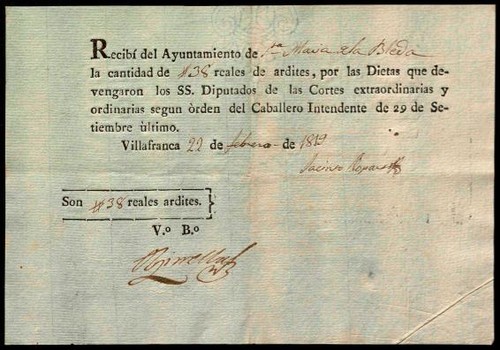 Recibí del Ayuntamiento de Sta Maria de la Bleda
la cantidad de #38 reales de ardites, por las Dietas que de-
vengaron los SS. Diputados de las Cortes extraordinarias y
ordinarias segun òrden del Caballero Intendente de 29 de Se-
tiembre ùltimo.
Villafranca 22 de febrero de 1819
Son #38 reales ardites.
V.º B.º